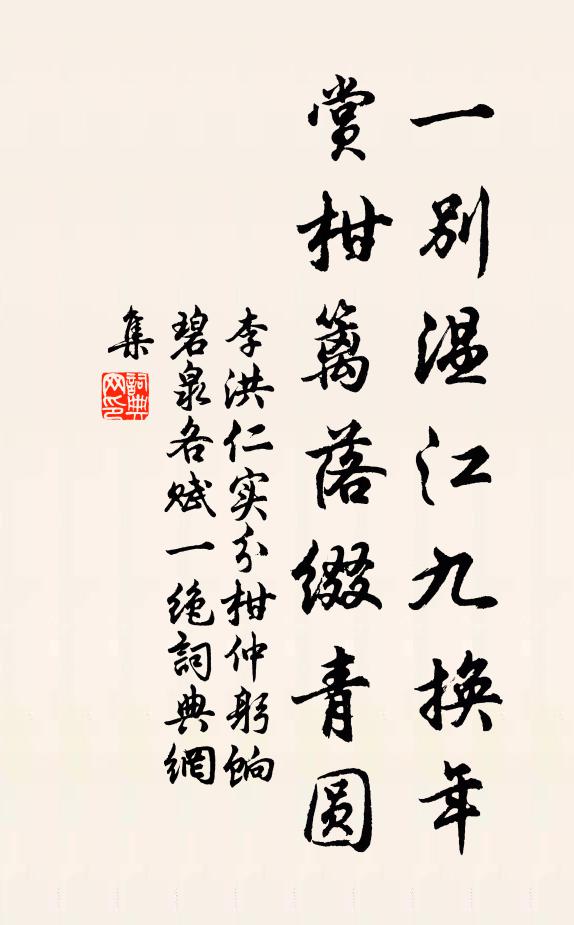 一别温江九换年
赏柑篱落缀青圆
李洪仁实分柑仲躬饷
碧泉各赋一绝詞典網
集
詞典
网印